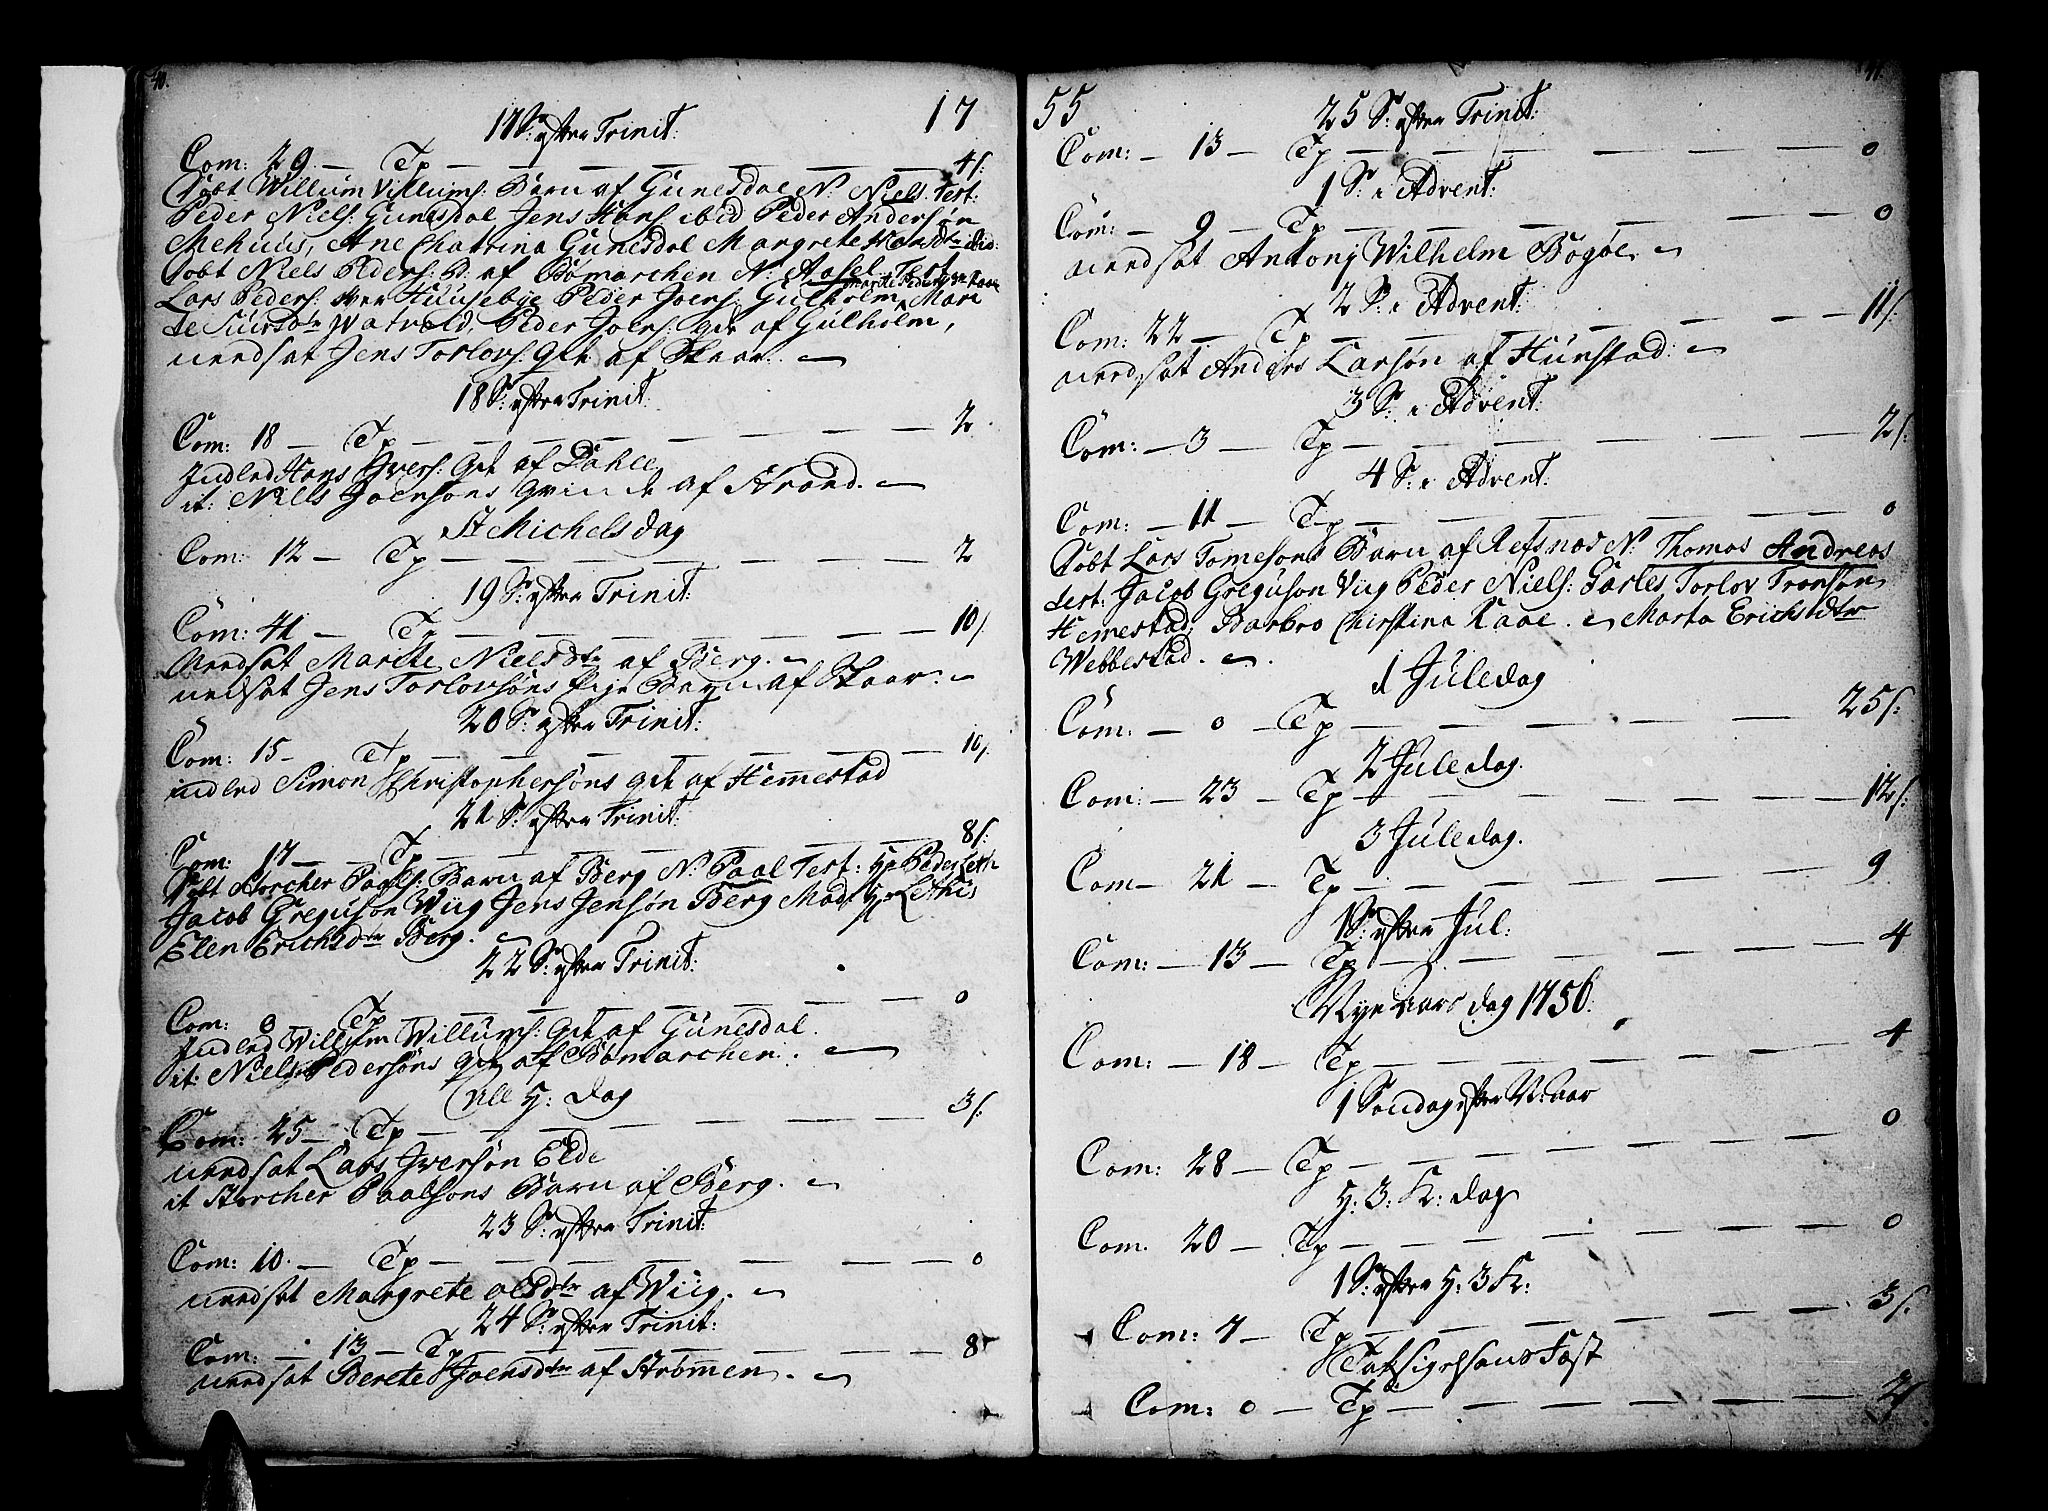 40.
17
17 S: efter Trinit:
Com: 29 — Tp — 4 s:
Døbt Willum Villums: Barn af Gunesdal N: Niels. Test:
Peder Niels: Gunesdal Jens Hans: ibid Peder Andersøn
Mehuus, Ane Chatrina Gunesdal Margrete Hansdtr ibid:
Døbt Niels Peders: B: af Bømarchen N: Aasel Test
Lars Peders: Huusebye Peder Joens: Gulholm, Mari
Watvold, Peder Joens: qde af Gulholm,
nedsat Jens Torlovs: qde af Skaar.
18 S: efter Trinit:
Com: 18 — Tp — 2
Indled Hans Ivers: Qde af Dahle
it: Niels Joensøns qvinde af Strand.
St Michelsdag
Com: 12 — Tp — 2
19 S: efter Trinit:
Com: 41 — Tp — 10 s:
Nedsat Marite Nielsdtr af Berg.
nedsat Jens Torlovsøns Pige Barn af Skaar.
20 S: efter Trinit:
Com: 15 — Tp — 10 s:
indled Simon Christophersøns qde af Hemmestad
21 S: efter Trinit:
Com: 17 — Tp — 8 s:
Døbt Storcher Paals: Barn af Berg N: Paal Test: Hr Peder Leth
Jacob Greguson Wiig Jens Jensøn Berg Mad: Hr Leths
Elen Erichsdtr Berg.
22 S: efter Trinit:
Com: 0 Tp — 0
Indled Willum Willums: Qde af Gunesdal.
it: Niels Pedersøns Qde af Bømarchen.
Alle H: dag
Com: 25 — Tp — 3 s:
nedsat Lars Iversøn Elde
it Storcher Paalsøns Barn af Berg.
23 S: efter Trinit:
Com: 10. — Tp — 0
nedsat Margrete olsdtr af Wiig.
24 S: efter Trinit:
Com: — 13 — Tp — 8
nedsat Berete Joensdtr af Strømmen.
41.
55
25 S: efter Trinit:
Com: — 13 — Tp — 0
1 S: i Advent:
Com: — 9 — Tp — 0
nedsat Antonj Wilhelm Bogøe.
2 S: i Advent:
Com: 22 — Tp — 11 s:
nedsat Anders Larsøn af Hunstad:
3 S: i Advent:
Com: — 3 — Tp — 2 s:
4 S: i Advent:
Com: — 11 — Tp — 0
Døbt Lars Tomesøns Barn af Refsnæs N: Thomas Andreas
test: Jacob Greguson Viig Peder Niels: Torlov Tronsøn
Hemestad: Barbro Chirstina Kaae. Marta Erichsdtr
Webbestad.
1 Juledag
Com: — 0 — Tp — 25 s:
2 Juledag.
Com: — 23 — Tp — 12 s:
3 Juledag.
Com — 21 — Tp — 9
1 S: efter Jul:
Com: — 13 — Tp — 4
Nye aars dag 1756.
Com: — 18 — Tp — 4
1 Søndag efter N: aar
Com: 28 — Tp — 0
H: 3: K: dag
Com. 20 — Tp — 0
1 S: efter H: 3 K:
Com: 7 — Tp — 3 s:
Taksigelsens Fest
Com: 0 — Tp — 2 s